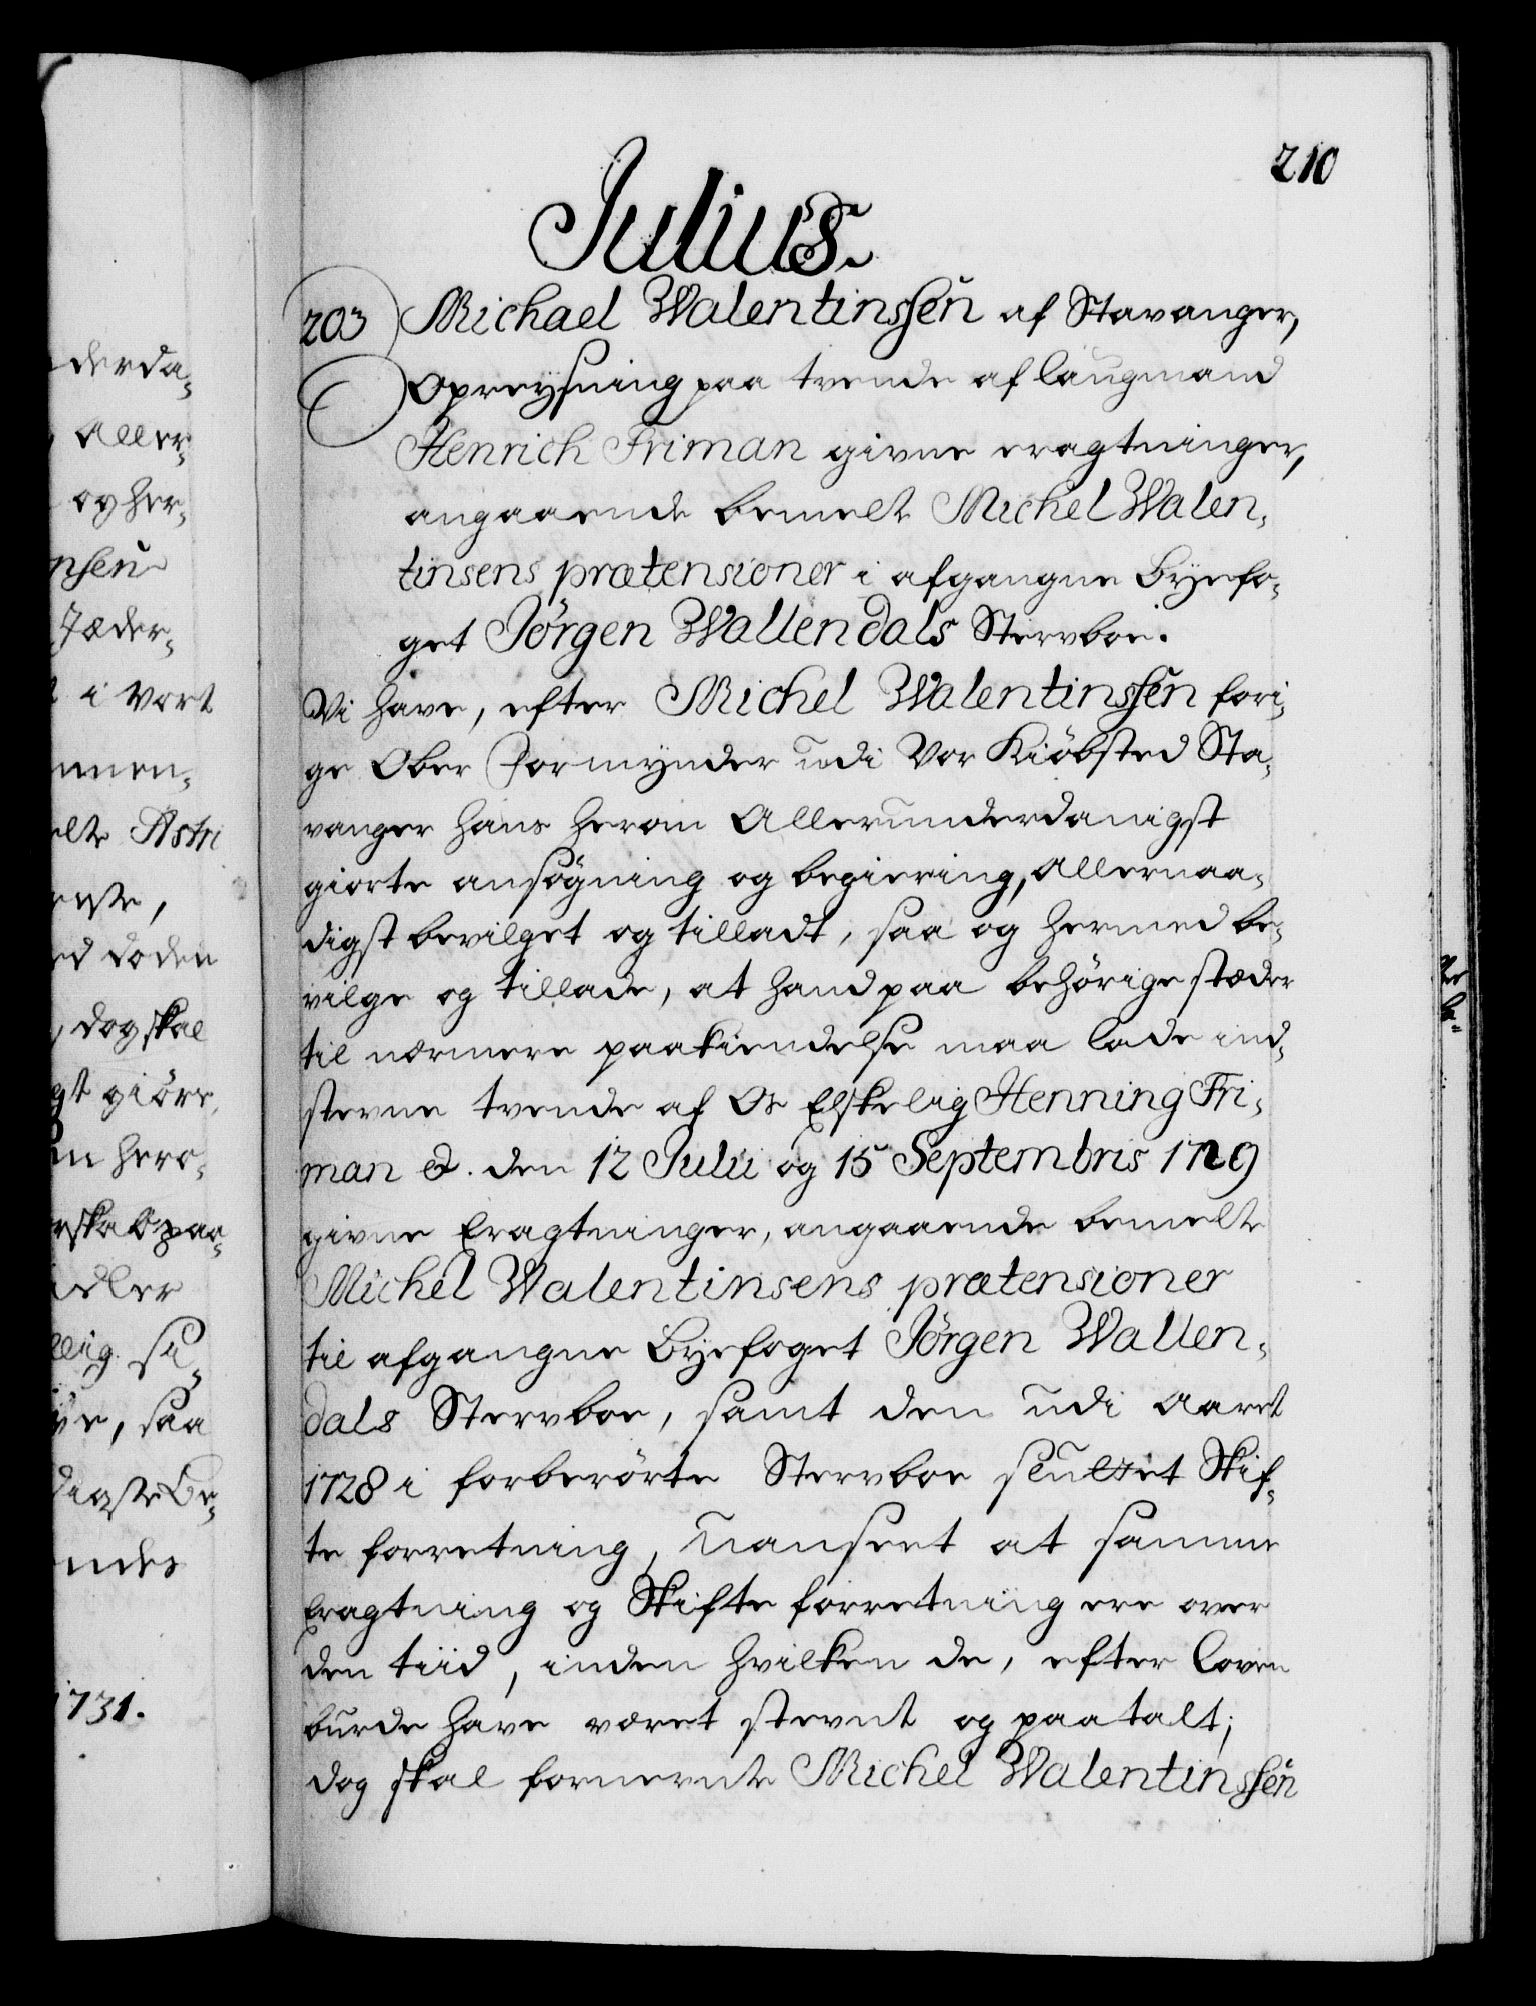 210
Julius.
203 Michael Walentinssen af Stavanger,
Opreysning paa tvende af laugmand
Henrich Friman givne eragtninger,
angaaende bemelt Michel Walen,
tinsens prætensioner i afgangne Byefo,
get Jörgen Wallendals Stervboe.
Vi have, efter Michel Walentinssen fori,
ge Ober Formynder udi Vor Kiöbsted Sta,
vanger hans herom Allerunderdanigst
giorte ansögning og begiering, Allernaa,
digst bevilget og tilladt, saa og hermed be,
vilge og tillade, at hand paa behörige stæder
til nærmere paakiendelse maa lade ind,
stevne tvende af Os Elskelig Henning Fri,
man &. den 12 Julii og 15 Septembris 1729
givne Eragtninger, angaaende bemelte
Michel Walentinsens prætensioner
til afgangne Byefoget Jörgen Wallen,
dals Stervboe, samt den udi Aaret
1728 i forberörte Stervboe sluttet Skif,
te forretning, uanseet at samme
Eragtning og Skifte forretning ere over
den tiid, inden hvilken de, efter loven
burde have været stevnt og paatalt;
dog skal fornevnte Michel Walentinssen
derda,
Aller,
og her,
nsen
Jæder,
i vort
nmen,
elte Astri
ed doden
dog skal
gt giöre,
hero,
rskab paa,
adler
llig
saa
digste Be,
ndes
1731.